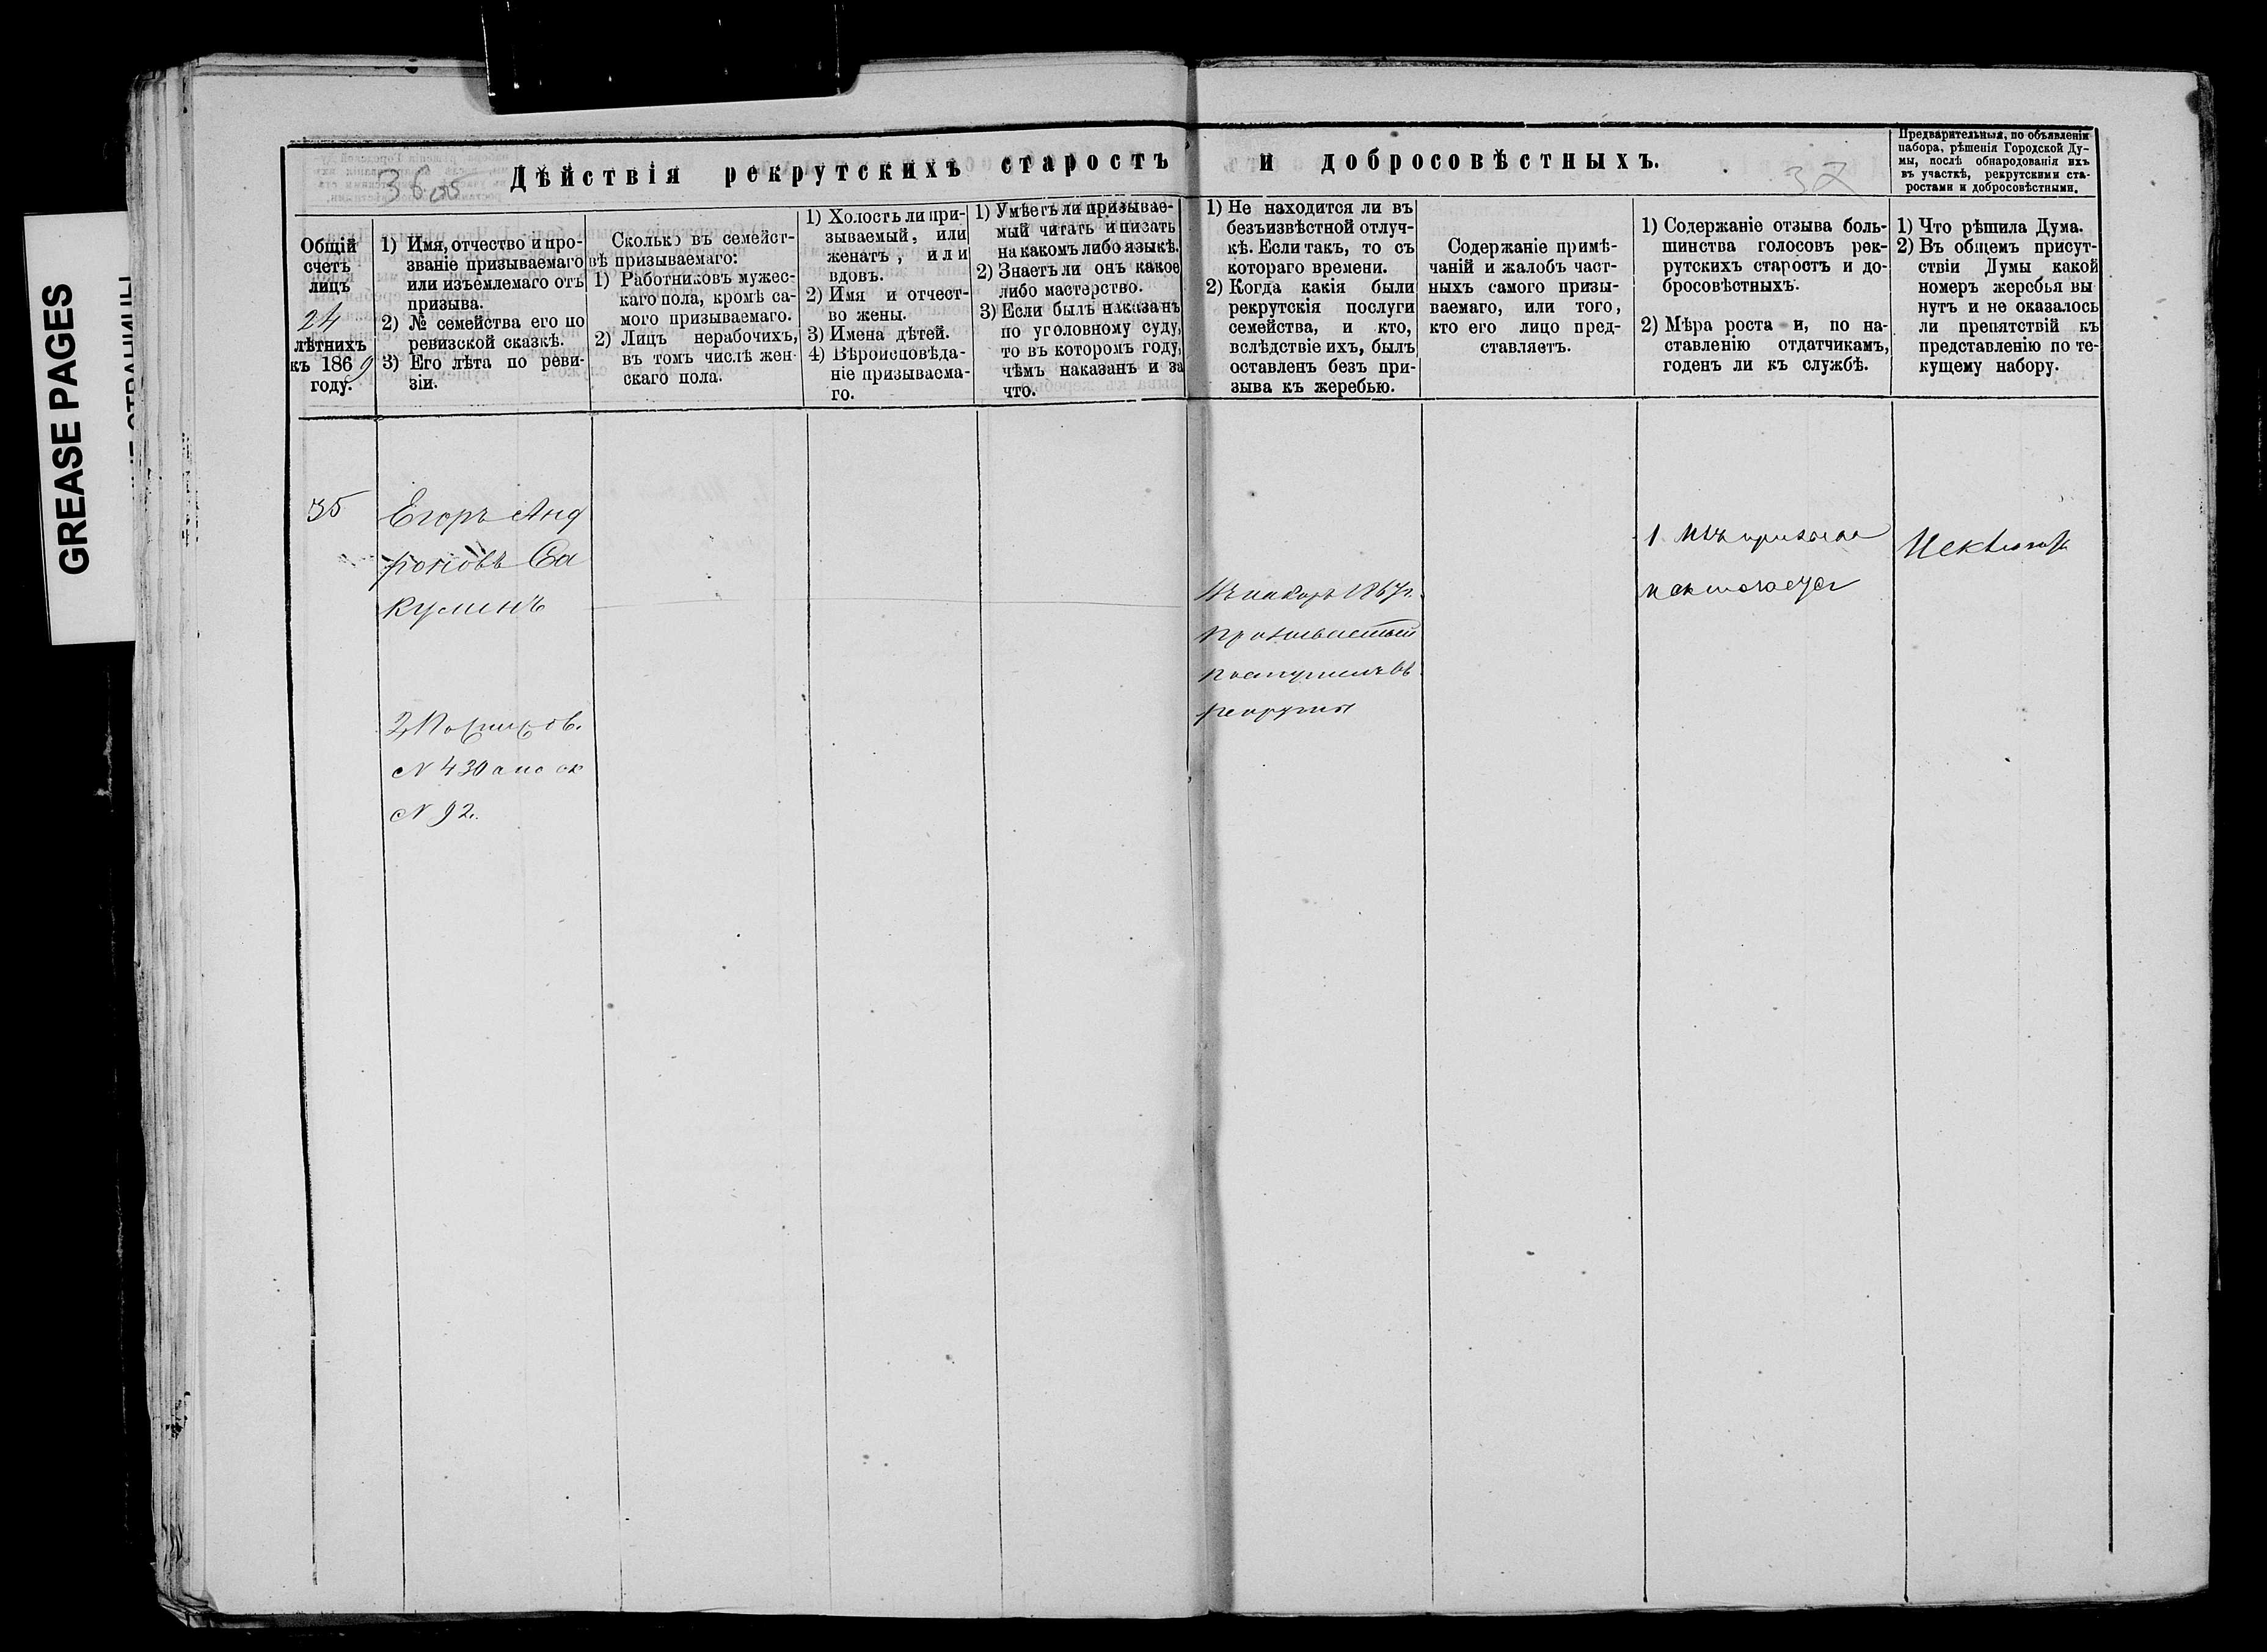 GREASE PAGES
Дѣйствія рекрутскихъ старостъ и добросовѣстныхъ.
36об
37
Предварительныя, по объявленіи
набора, рѣшенія Городской Ду-
мы, послѣ обнародованія ихъ
въ участкѣ, рекрутскими ста-
ростами и добросовѣстными.
Общій
счетъ
лицъ
24
лѣтнихъ
къ 1869
году.
1) Имя, отчество и про-
званіе призываемаго
или изъемлемаго отъ
призыва.
2) № семейства его по
ревизской сказкѣ.
3) Его лѣта по реви-
зіи.
Сколько въ семейст-
вѣ призываемаго:
1) Работниковъ мужес-
каго пола, кромѣ са-
мого призываемаго.
2) Лицъ нерабочихъ,
въ томъ числѣ жен-
скаго пола.
1) Холостъ ли при-
зываемый, или
женатъ, или
вдовъ.
2) Имя и отчест-
во жены.
3) Имена дѣтей.
4) Вѣроисповѣда-
ніе призываема-
го.
1) Умѣетъ ли призывае-
мый читать и писать
на какомъ либо языкѣ.
2) Знаетъ ли онъ какое
либо мастерство.
3) Если былъ наказанъ
по уголовному суду,
то въ которомъ году,
чѣмъ наказанъ и за
что.
1) Не находится ли въ
безъизвѣстной отлуч-
кѣ. Если такъ, то съ
котораго времени.
2) Когда какія были
рекрутскія послуги
семейства, и кто,
вслѣдствіе ихъ, былъ
оставленъ безъ при-
зыва къ жеребью.
Содержаніе примѣ-
чаній и жалобъ част-
ныхъ самого призы-
ваемаго, или того,
кто его лицо пред-
ставляетъ.
1) Содержаніе отзыва боль-
шинства голосовъ рек-
рутскихъ старостъ и до-
бросовѣстныхъ.
2) Мѣра роста и, по на-
ставленію отдатчикамъ,
годенъ ли къ службѣ.
1) Что рѣшила Дума.
2) Въ общемъ присут-
ствіи Думы какой
номеръ жеребья вы
нутъ и не оказалось
ли препятствій къ
представленію по те-
кущему набору.
35
Егоръ Анд
роновъ Са
кулинъ
2,
№ 430 а по ск
№ 92.
наборъ 1867г.
призываемый
поступилъ въ
рекруты
1 Изъ призыва
исключается
Исключить